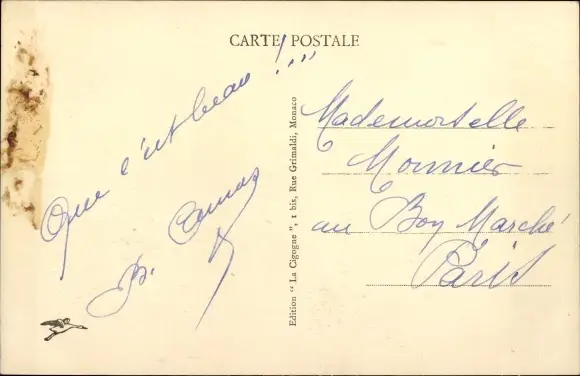 CARTE POSTALE
Que c'est beau !...."
Edition " La Cigogne ", 1 bis, Rue Grimaldi, Monaco
Mademoiselle
Monnier
au Bon Marché
Paris